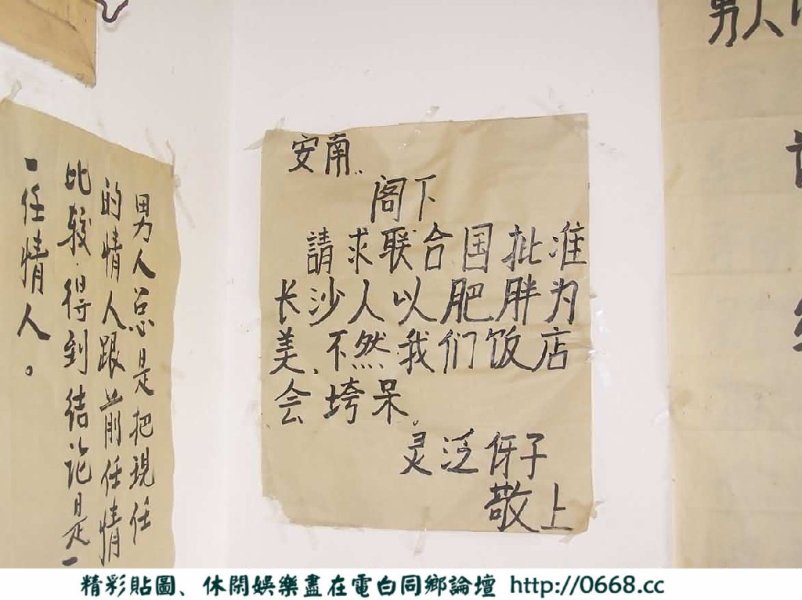 男人总是把現任
的情人跟前任情
比较得到结论是
一任情人。
安南..
阁下
請求联合国批准
长沙人以肥胖为
美、不然我们饭店
会垮呆。
灵泛伢子
敬上
男人
精彩貼圖、休閑娛樂盡在電白同鄉論壇 http://0668.cc